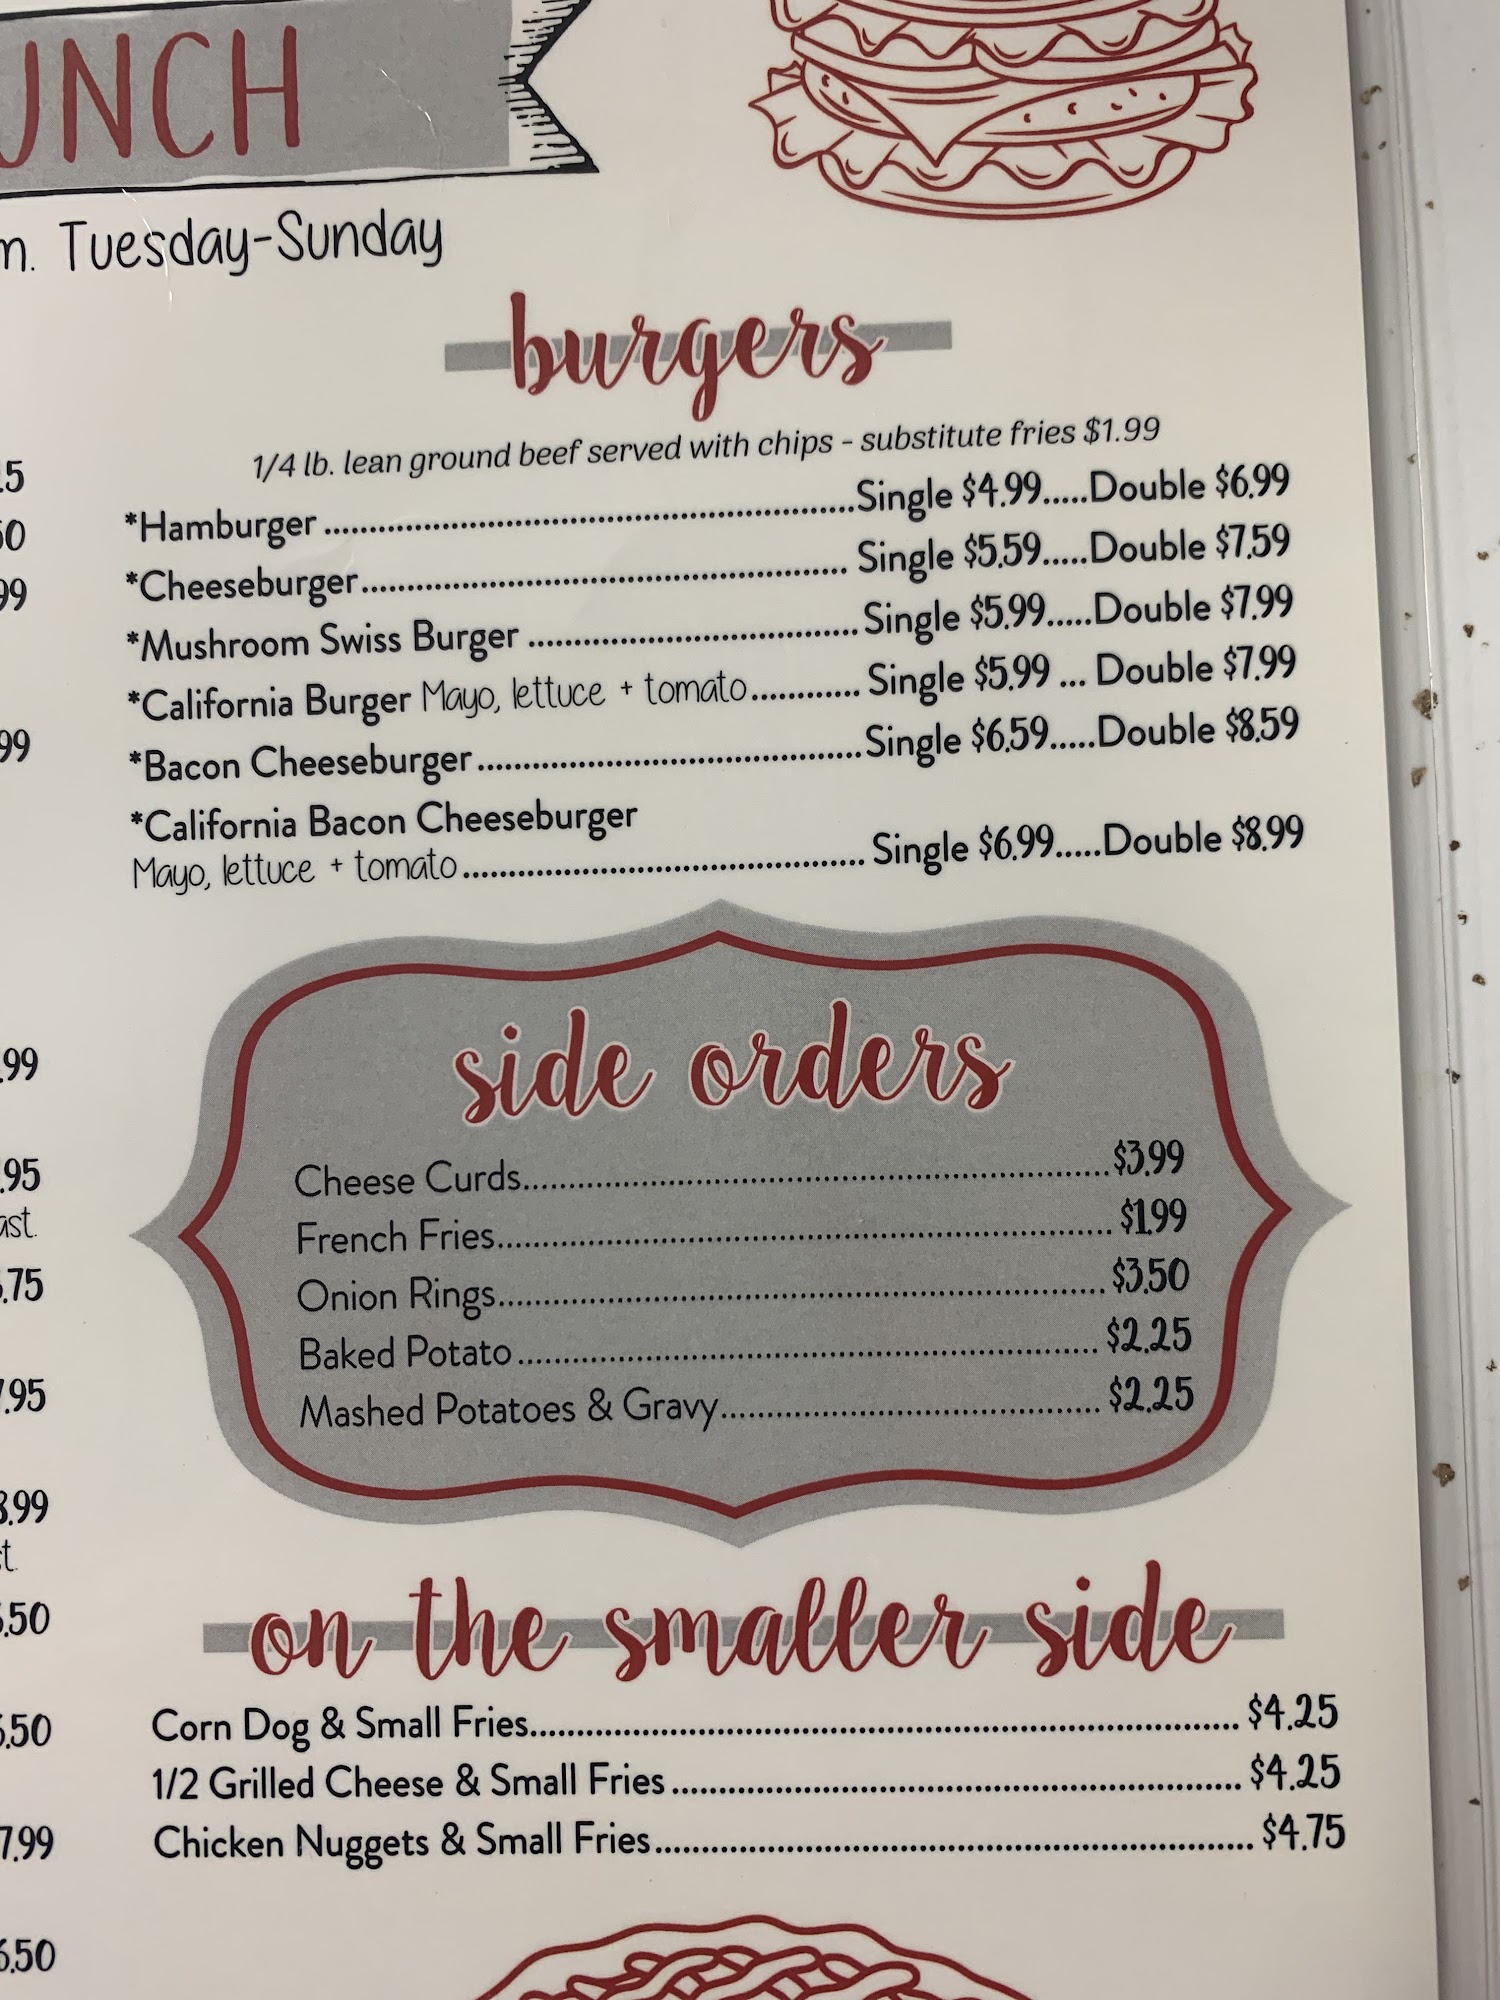 UNCH
m. Tuesday-Sunday
burgers
1/4 lb. lean ground beef served with chips - substitute fries $1.99
*Hamburger ........ Single $4.99.....Double $6.99
*Cheeseburger........ Single $5.59.....Double $7.59
*Mushroom Swiss Burger ........ Single $5.99.....Double $7.99
*California Burger Mayo, lettuce + tomato............ Single $5.99 ... Double $7.99
*Bacon Cheeseburger ........ Single $6.59.....Double $8.59
*California Bacon Cheeseburger
Mayo, lettuce + tomato........ Single $6.99.....Double $8.99
side orders
Cheese Curds........ $3.99
French Fries........ $1.99
Onion Rings........ $3.50
Baked Potato ........ $2.25
Mashed Potatoes & Gravy........ $2.25
on the smaller side
Corn Dog & Small Fries........ $4.25
1/2 Grilled Cheese & Small Fries ........ $4.25
Chicken Nuggets & Small Fries........ $4.75
99
99
.99
.95
ast.
.75
.95
8.99
t.
.50
.50
7.99
6.50